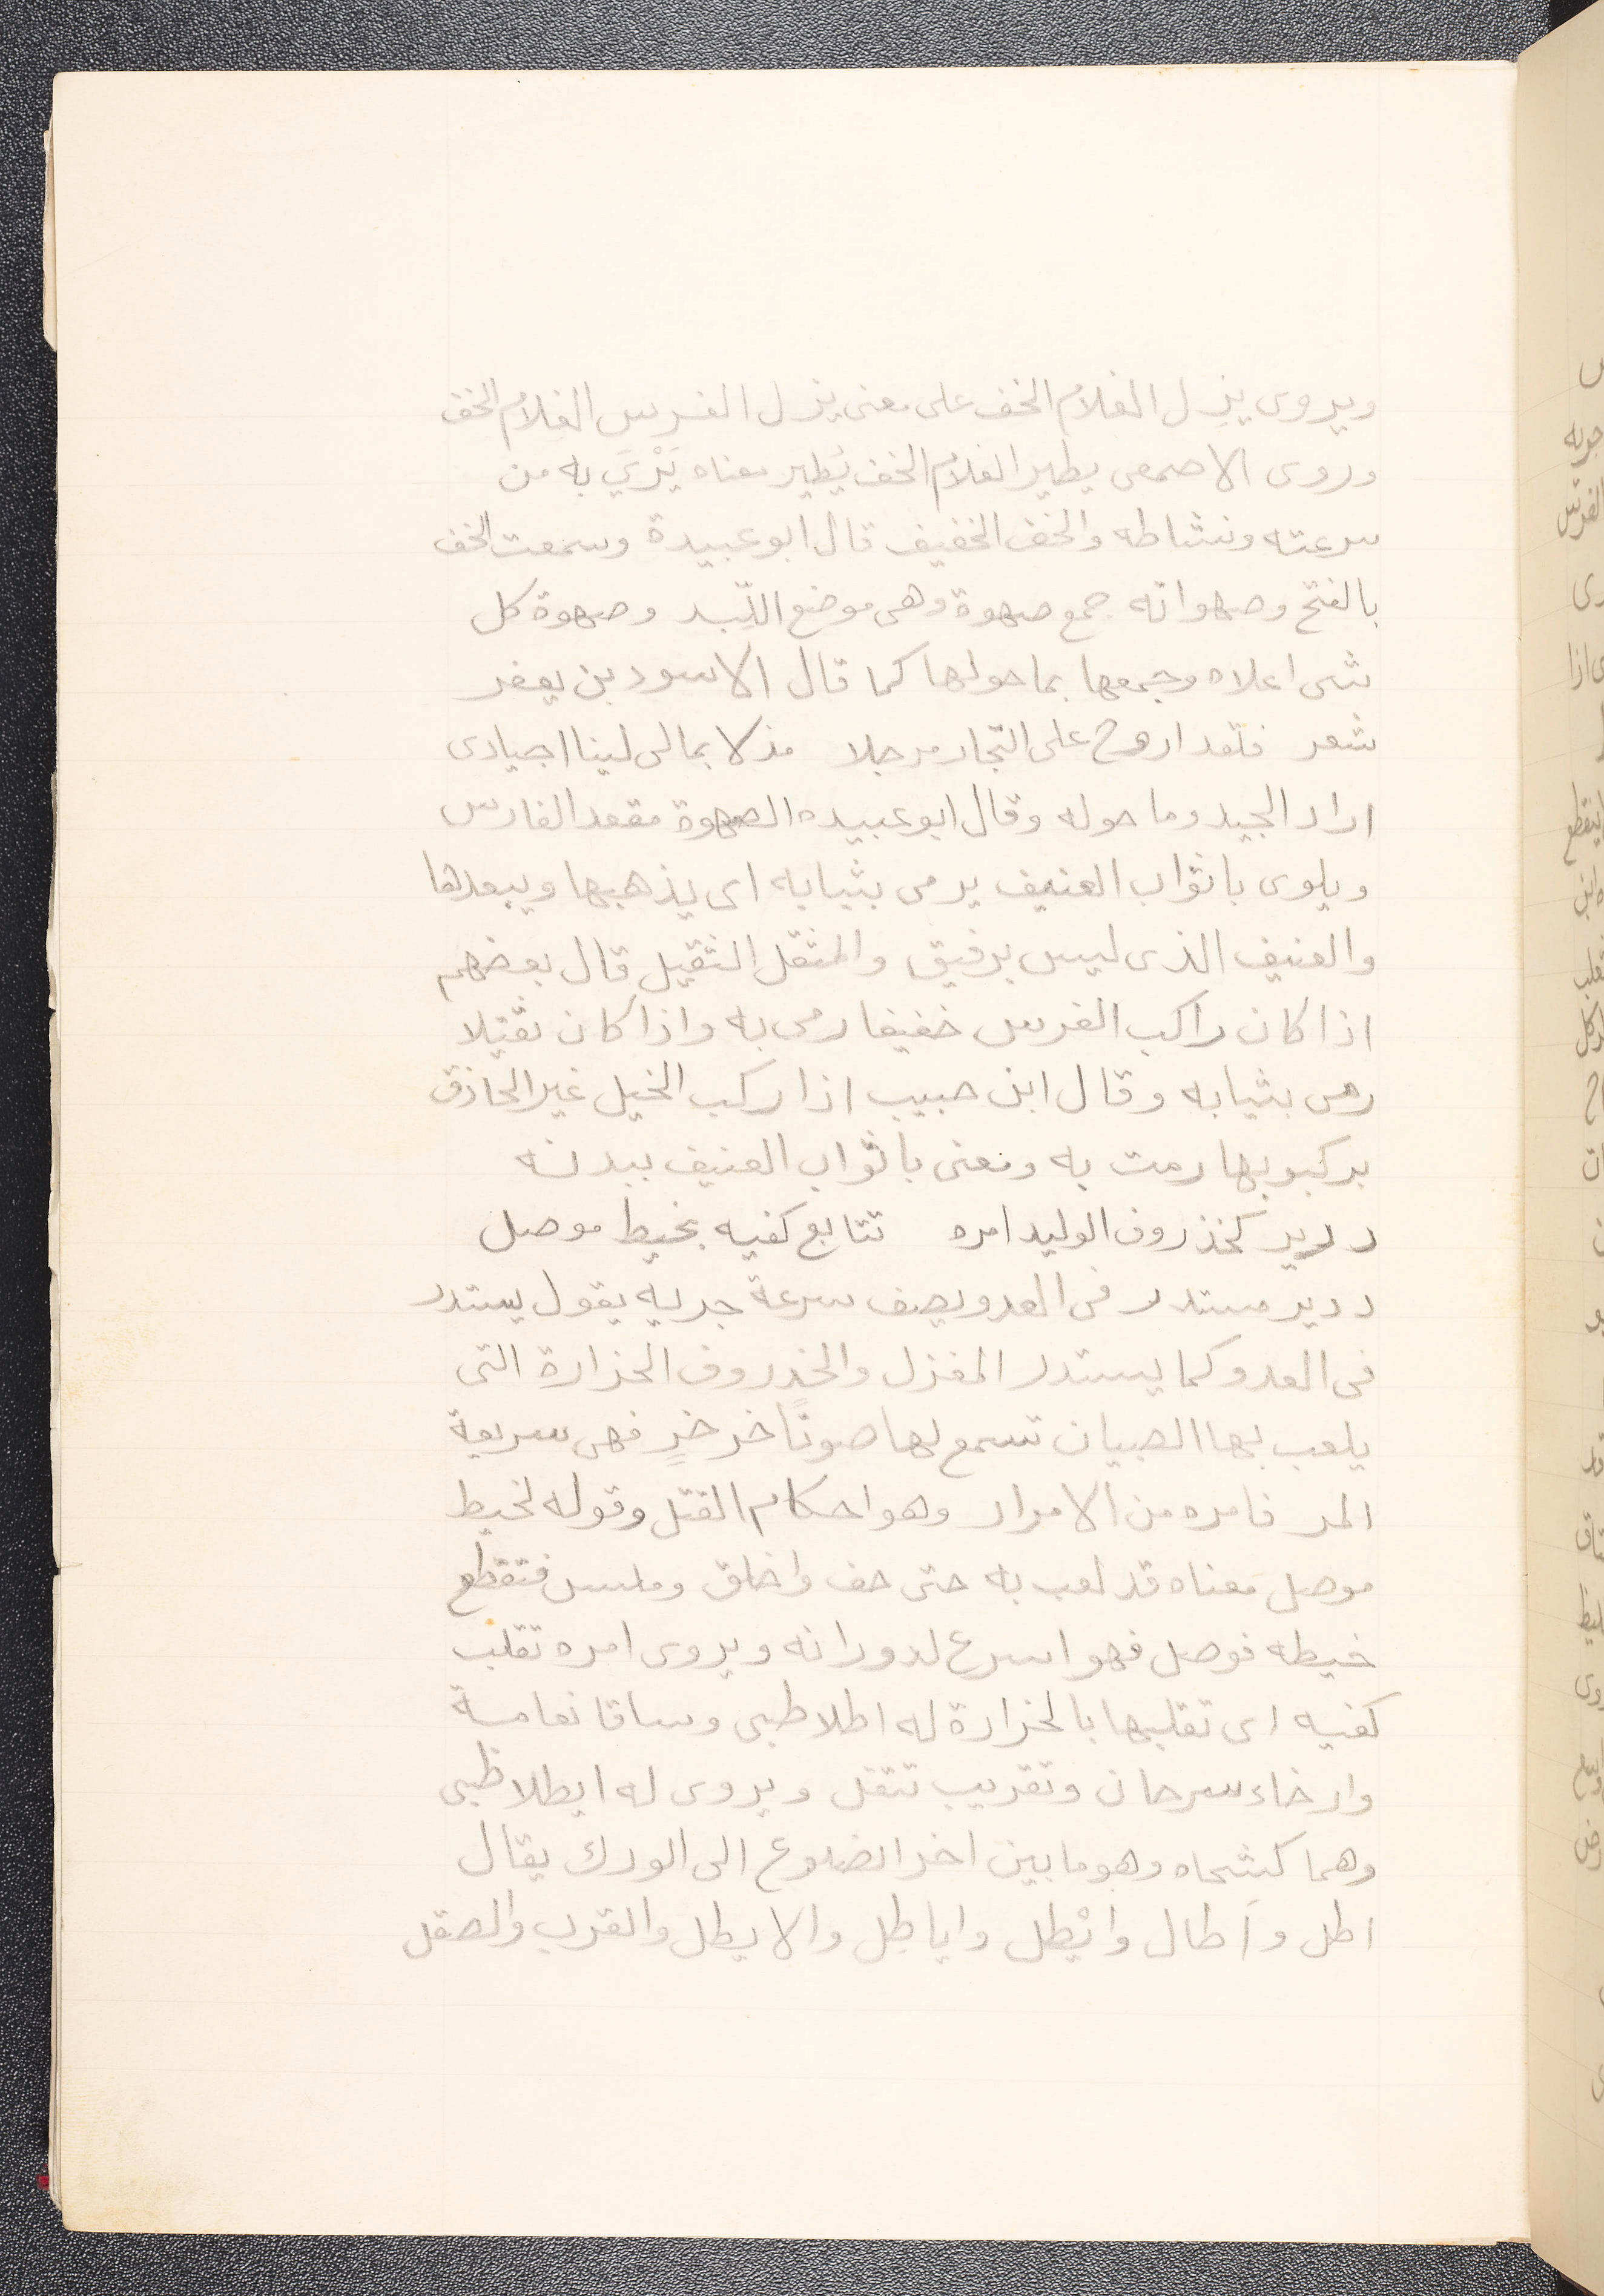 ويروى يزل الغلام الخف على معنى يزل الفرس الغلام الخف
وروى الاصمعى يطير الغلام الخف يُطير معناه يَرْيَ به من
سرعته ونشاطه والخف الخفيف قال ابو عبيدة وسمعت الخف
بالفتح وصهواته جمع صهوة وهى موضع اللّبد وصهوة كل
شى اعلاه وجمعها بما حولها كما قال الاسود بن يعفر
شعر فلقد اروح على التجار مرجلا مذلا بمالى لينا اجيادى
اراد الجيد وما حوله وقال ابو عبيده الصهوة مقعد الفارس
ويلوى باثواب العنيف يرمى بثيابه اى يذهبها ويبعدها
والعنيف الذى ليس برفيق والمثقل الثقيل قال بعضهم
اذا كان راكب الفرس خفيفا رمى به واذا كان ثقيلا
رمى بثيابه وقال ابن حبيب اذا ركب الخيل غير الحاذق
بركبوبها رمت به ونعنى باثواب العنيف ببدنه
درير كخذروف الوليد امره تتابع كفيه بخيط موصل
درير مستدر فى العدو يصف سرعة جريه يقول يستدر
فى العدو كما يستدر المغزل والخذروف الخرارة التى
يلعب بها الصبيان تسمع لها صوتًا خر خرٍ فهى سريعة
المر فامره من الامرار وهو احكام الفتل وقوله لخيط
موصل معناه قد لعب به حتى خف واخلق وملس فتقطع
خيطه فوصل فهو اسرع لدورانه ويروى امره تقلب
كفيه اى تقلبها بالخرارة له اطلا ظبى وساقا نعامة
وارخاء سرحان وتقريب تتفل ويروى له ايطلا ظبى
وهما كشحاه وهو ما بين اخر الضلوع الى الورك يقال
اطل وآطال وايْطل واياطل والايطل والقرب والصقل